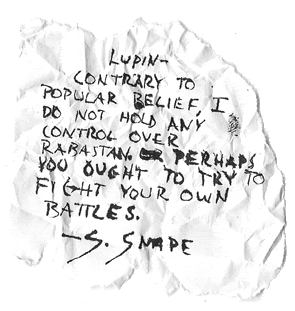 LUPIN-
CONTRARY TO
POPULAR BELIEF, I
DO NOT HOLD ANY
CONTROL OVER
RABASTAN. OR PERHAPS
YOU OUGHT TO TRY TO
FIGHT YOUR OWN
BATTLES.
-S. SNAPE